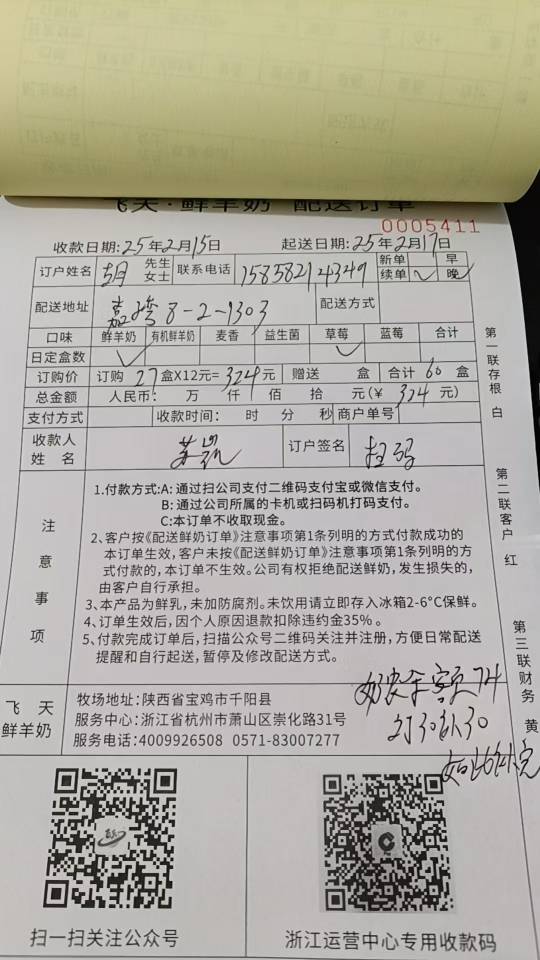 飞天·鲜羊奶 配送订单
0005411
收款日期:25年2月15日 起送日期:25年2月17日
订户姓名 胡 先生 女士 联系电话 15858214349 新单 早 续单 ✓ 晚
配送地址 8-2-1303 配送方式
口味 鲜羊奶 有机鲜羊奶 麦香 益生菌 草莓 蓝莓 合计
日定盒数 ✓ ✓
订购价 订购 27 盒X12元= 324 元 赠送 盒 合计 60 盒
总金额 人民币: 万 仟 佰 拾 元(¥ 324 元)
支付方式 收款时间: 时 分 秒 商户单号
收款人姓名 订户签名
注意事项
1.付款方式:A: 通过扫公司支付二维码支付宝或微信支付。
B: 通过公司所属的卡机或扫码机打码支付。
C:本订单不收取现金。
2、客户按《配送鲜奶订单》注意事项第1条列明的方式付款成功的
本订单生效,客户未按《配送鲜奶订单》注意事项第1条列明的方
式付款的,本订单不生效。公司有权拒绝配送鲜奶,发生损失的,
由客户自行承担。
3、本产品为鲜乳,未加防腐剂。未饮用请立即存入冰箱2-6°C保鲜。
4、订单生效后,因个人原因退款扣除违约金35%。
5、付款完成订单后,扫描公众号二维码关注并注册,方便日常配送
提醒和自行起送,暂停及修改配送方式。
第一联存根 白
第二联客户 红
第三联财务 黄
飞天鲜羊奶
牧场地址:陕西省宝鸡市千阳县
服务中心:浙江省杭州市萧山区崇化路31号
服务电话:4009926508 0571-83007277
余额74
订30送30
扫一扫关注公众号
浙江运营中心专用收款码